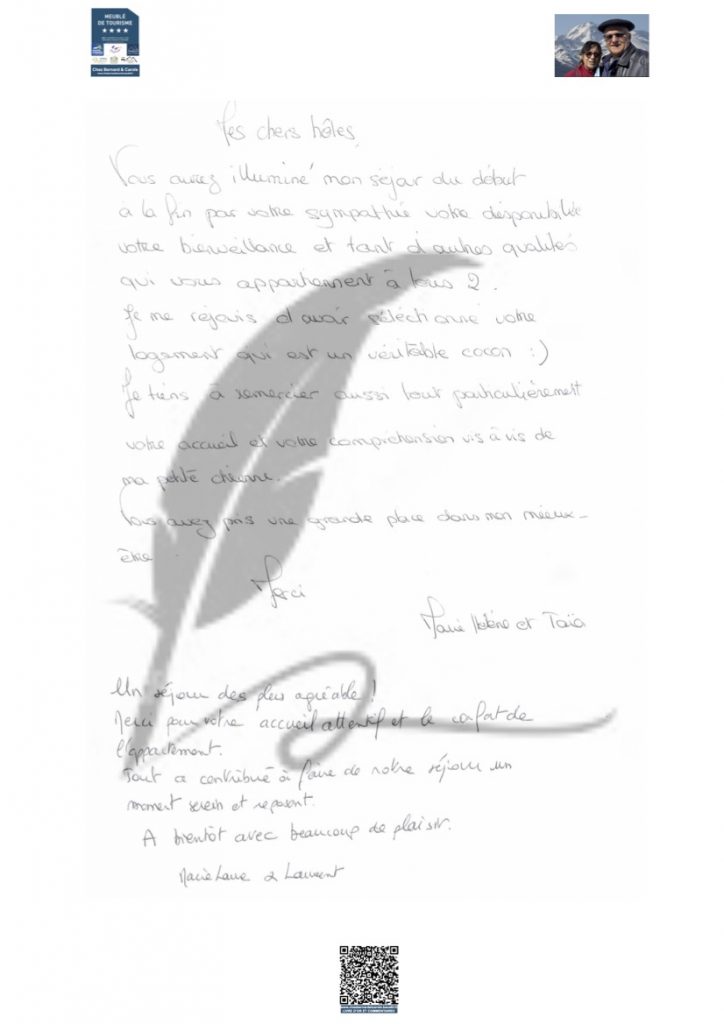 MEUBLÉ
DE TOURISME
★★★★
Chez Bernard & Carole
Mes chers hôtes,
Vous aurez illuminé mon séjour du début
à la fin par votre sympathie votre disponibilité
votre bienveillance et tant d'autres qualités
qui vous appartiennent à tous 2.
Je me réjouis d'avoir séléctionné votre
logement qui est un véritable cocon :)
Je tiens à remercier aussi tout particulièrement
votre accueil et votre compréhension vis à vis de
ma petite chienne.
Vous avez pris une grande place dans mon mieux-
être
Merci
Marie Hélène et Taïa
Un séjour des plus agréable !
Merci pour votre accueil attentif et le confort de
l'appartement.
Tout a contribué à faire de notre séjour un
moment serein et reposant.
A bientôt avec beaucoup de plaisir.
Marie Laure & Laurent
LIVRE D'OR ET COMMENTAIRES